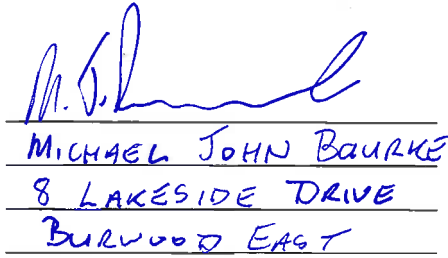 MICHAEL JOHN BOURKE
8 LAKESIDE DRIVE
BURWOOD EAST